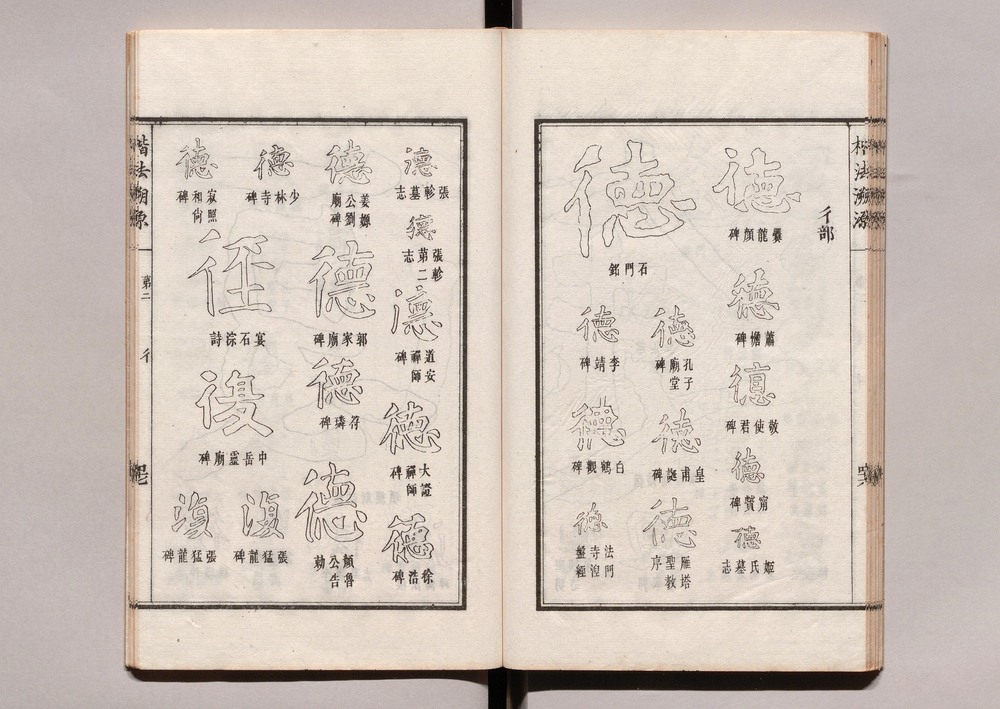 楷法溯源
彳部
德
爨龍顏碑
德
蕭憺碑
德
敬使君碑
德
甯贙碑
德
姬氏墓志
德
石門銘
德
孔子廟堂碑
德
皇甫誕碑
德
雁塔聖教序
德
李靖碑
德
白鶴觀碑
德
法門寺湼盤經
德
張軫墓志
德
張軫第二志
德
道安禪師碑
德
大證禪師碑
德
徐浩碑
德
姜嫄公劉廟碑
德
郭家廟碑
德
苻璘碑
德
顏魯公告勅
德
少林寺碑
德
寂照和尙碑
徑
宴石淙詩
復
中岳靈廟碑
復
張猛龍碑
復
張猛龍碑
楷法溯源
第二
彳